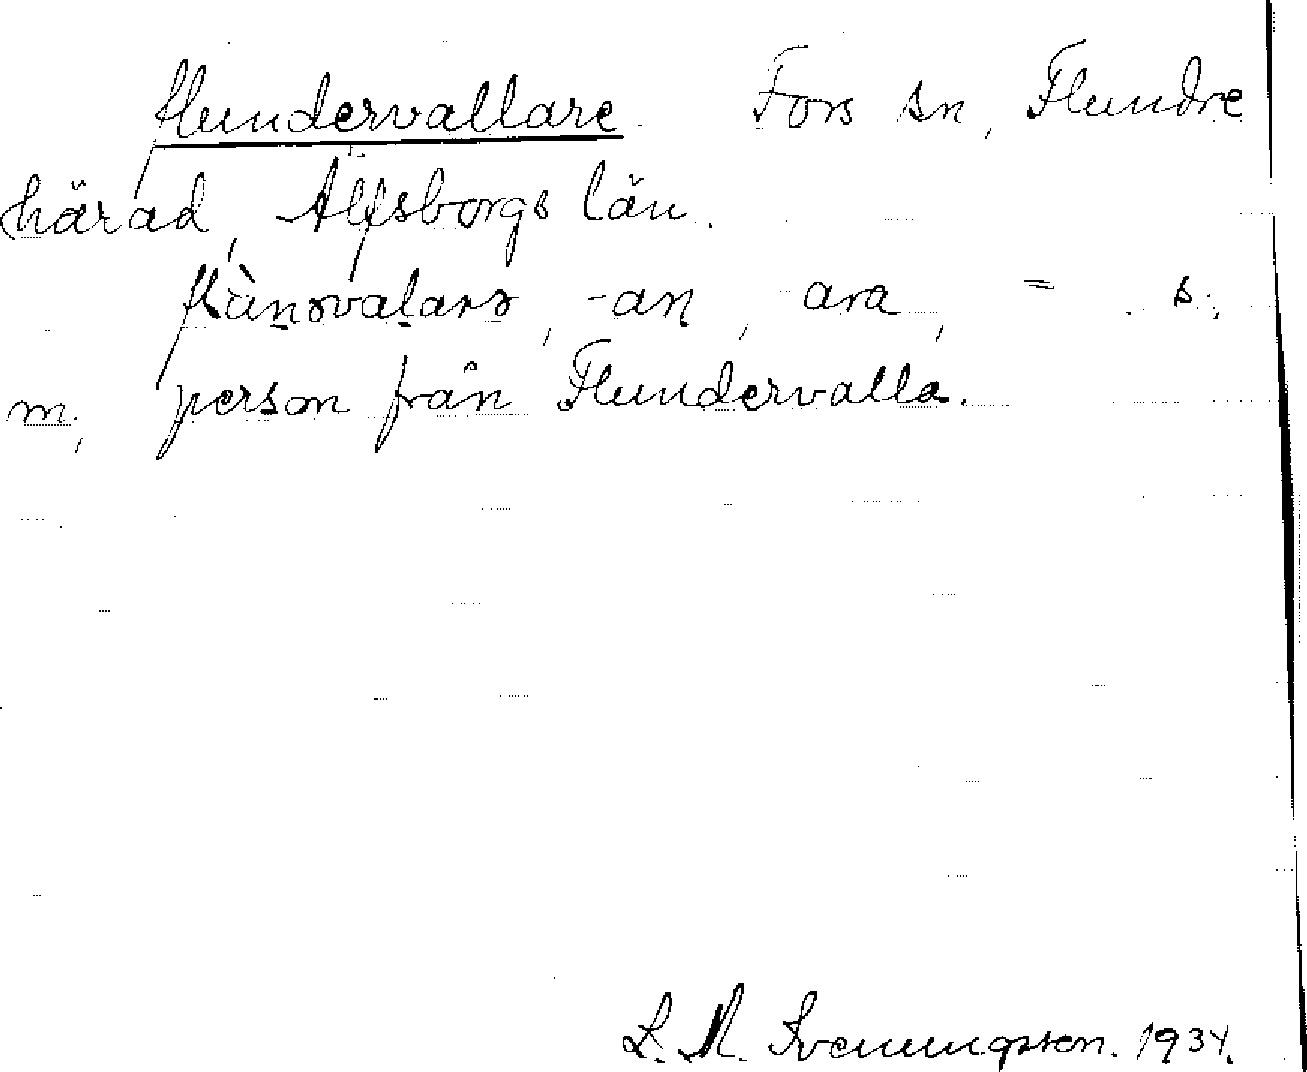 flundervallare Fors sn, Flundre
härad, Älfsborgs län.
-an, ara, = s.,
m., person från Flundervalla.
L. M. Svenungsson. 1934.